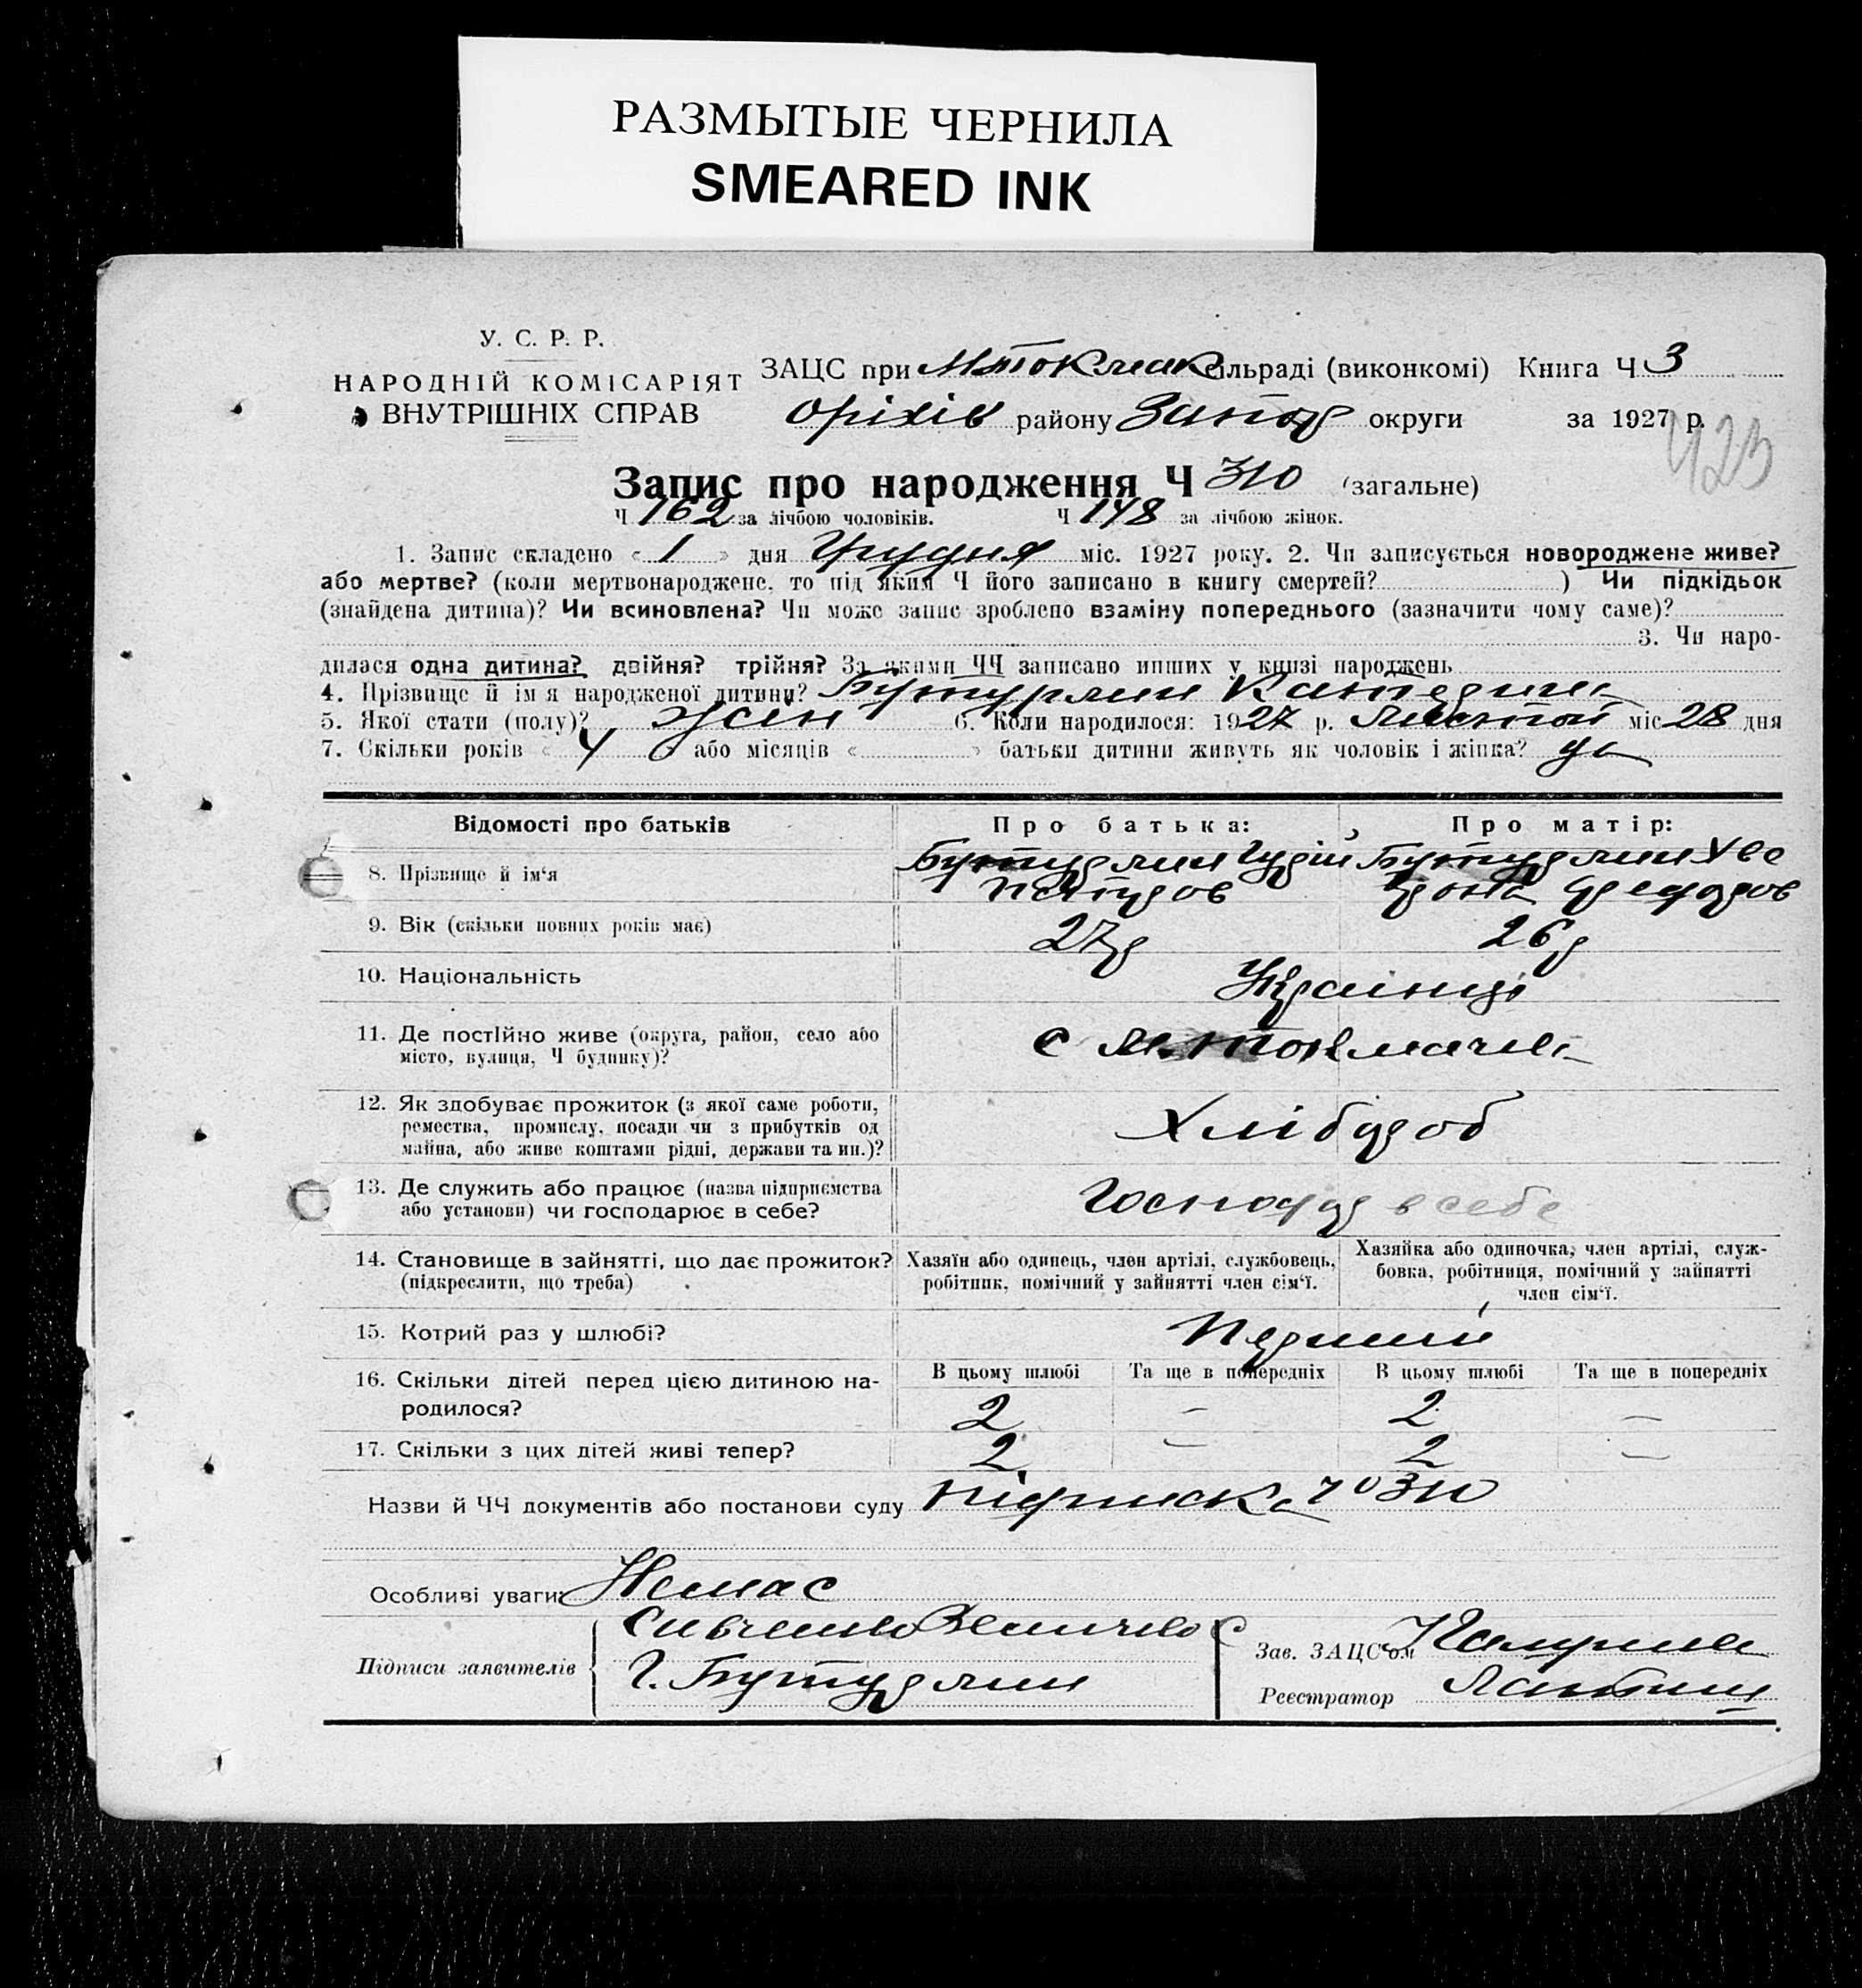 РАЗМЫТЫЕ ЧЕРНИЛА
SMEARED INK
У. С. Р. Р.
НАРОДНІЙ КОМІСАРІЯТ
ВНУТРІШНІХ СПРАВ
ЗАЦС при сільраді (виконкомі) Книга Ч 3
Оріхів району Запор округи за 1927 р.
423
Запис про народження Ч 310 (загальне)
Ч 162 за лічбою чоловіків. Ч 148 за лічбою жінок.
1. Запис складено « 1 » дня Грудня міс. 1927 року. 2. Чи записується новороджене живе?
або мертве? (коли мертвонароджене, то під яким Ч його записано в книгу смертей? ) Чи підкідьок
(знайдена дитина)? Чи всиновлена? Чи може запис зроблено взаміну попереднього (зазначити чому саме)?
3. Чи наро-
дилася одна дитина? двійня? трійня? За якими ЧЧ записано инших у книзі народжень
4. Прізвище й ім я народженої дитини? Бутурлин
5. Якої стати (полу)? жін 6. Коли народилося: 1927 р. міс 28 дня
7. Скільки років « 4 або місяців « » батьки дитини живуть як чоловік і жінка? да
Відомості про батьків
Про батька:
Про матір:
8. Прізвище й ім‘я
Бутурлин Бутурлин Хве
9. Вік (скільки повних років має)
27р 26р
10. Національність
Українці
11. Де постійно живе (округа, район, село або
місто, вулиця, Ч будинку)?
с
12. Як здобуває прожиток (з якої саме роботи,
ремества, промислу, посади чи з прибутків од
майна, або живе коштами рідні, держави та ин.)?
Хлібороб
13. Де служить або працює (назва підприємства
або установи) чи господарює в себе?
Господар в себе
14. Становище в зайнятті, що дає прожиток?
(підкреслити, що треба)
Хазяїн або одинець, член артілі, службовець,
робітник, помічний у зайнятті член сім‘ї.
Хазяйка або одиночка, член артілі, служ-
бовка, робітниця, помічний у зайнятті
член сім‘ї.
15. Котрий раз у шлюбі?
Перший
16. Скільки дітей перед цією дитиною на-
родилося?
В цьому шлюбі Та ще в попередніх В цьому шлюбі Та ще в попередніх
2 — 2 —
17. Скільки з цих дітей живі тепер?
2 — 2 —
Назви й ЧЧ документів або постанови суду підписка 310
Особливі уваги: Немає
Підписи заявителів
Г. Бутурлин
Зав. ЗАЦС‘ом
Реєстратор